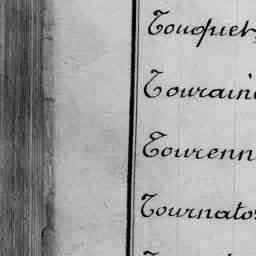 Touquet,
Tourain
Tourenn
Tournato